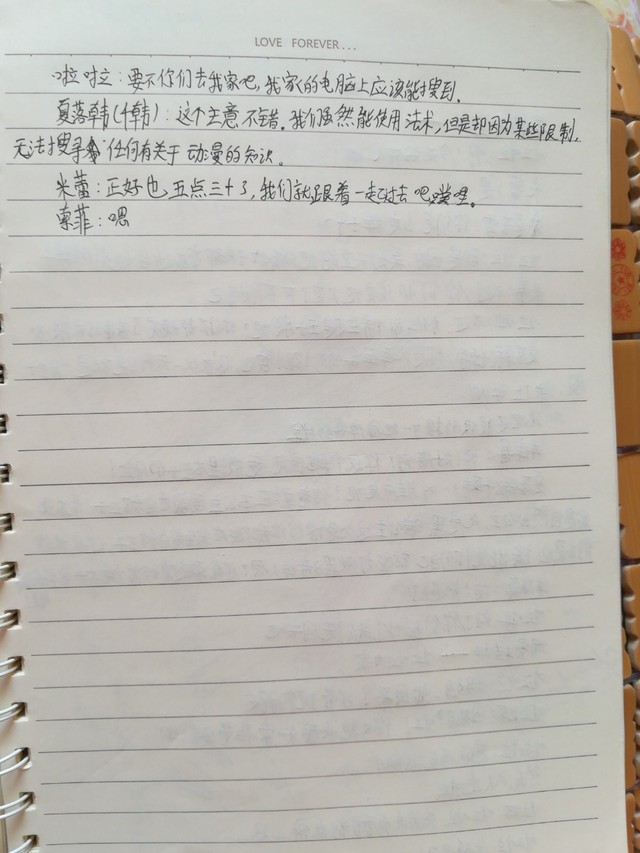 LOVE FOREVER...
啦啦：要不你们去我家吧，我家的电脑上应该能搜到。
夏落韩(千韩)：这个主意不错。我们虽然能使用法术，但是却因为某些限制，
无法搜寻 任何有关于动漫的知识。
米蕾：正好也五点三十了，我们就跟着一起过去吧，噗哩。
索菲：嗯